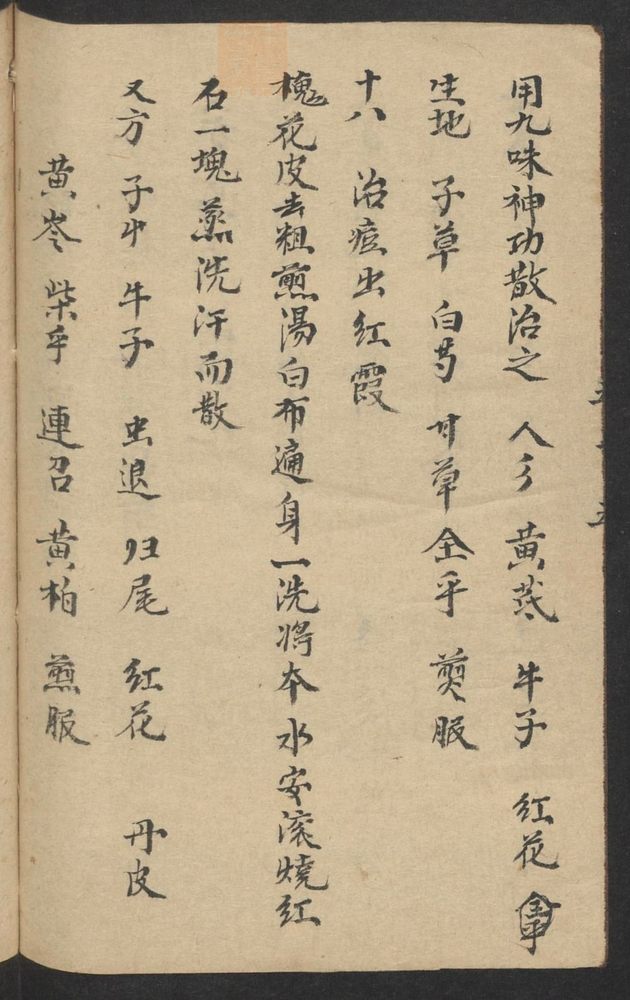 用九味神功散治之 人彡 黄芪 牛子 红花
生地 子草 白芍 甘草 全乎 煎服
十八 治痘出红霞
槐花皮去粗煎湯白布遍身一洗将本水安滚燒红
石一塊蒸洗汗而散
又方 子中 牛子 虫退 归尾 红花 丹皮
黄岑 柴乎 連召 黄柏 煎服